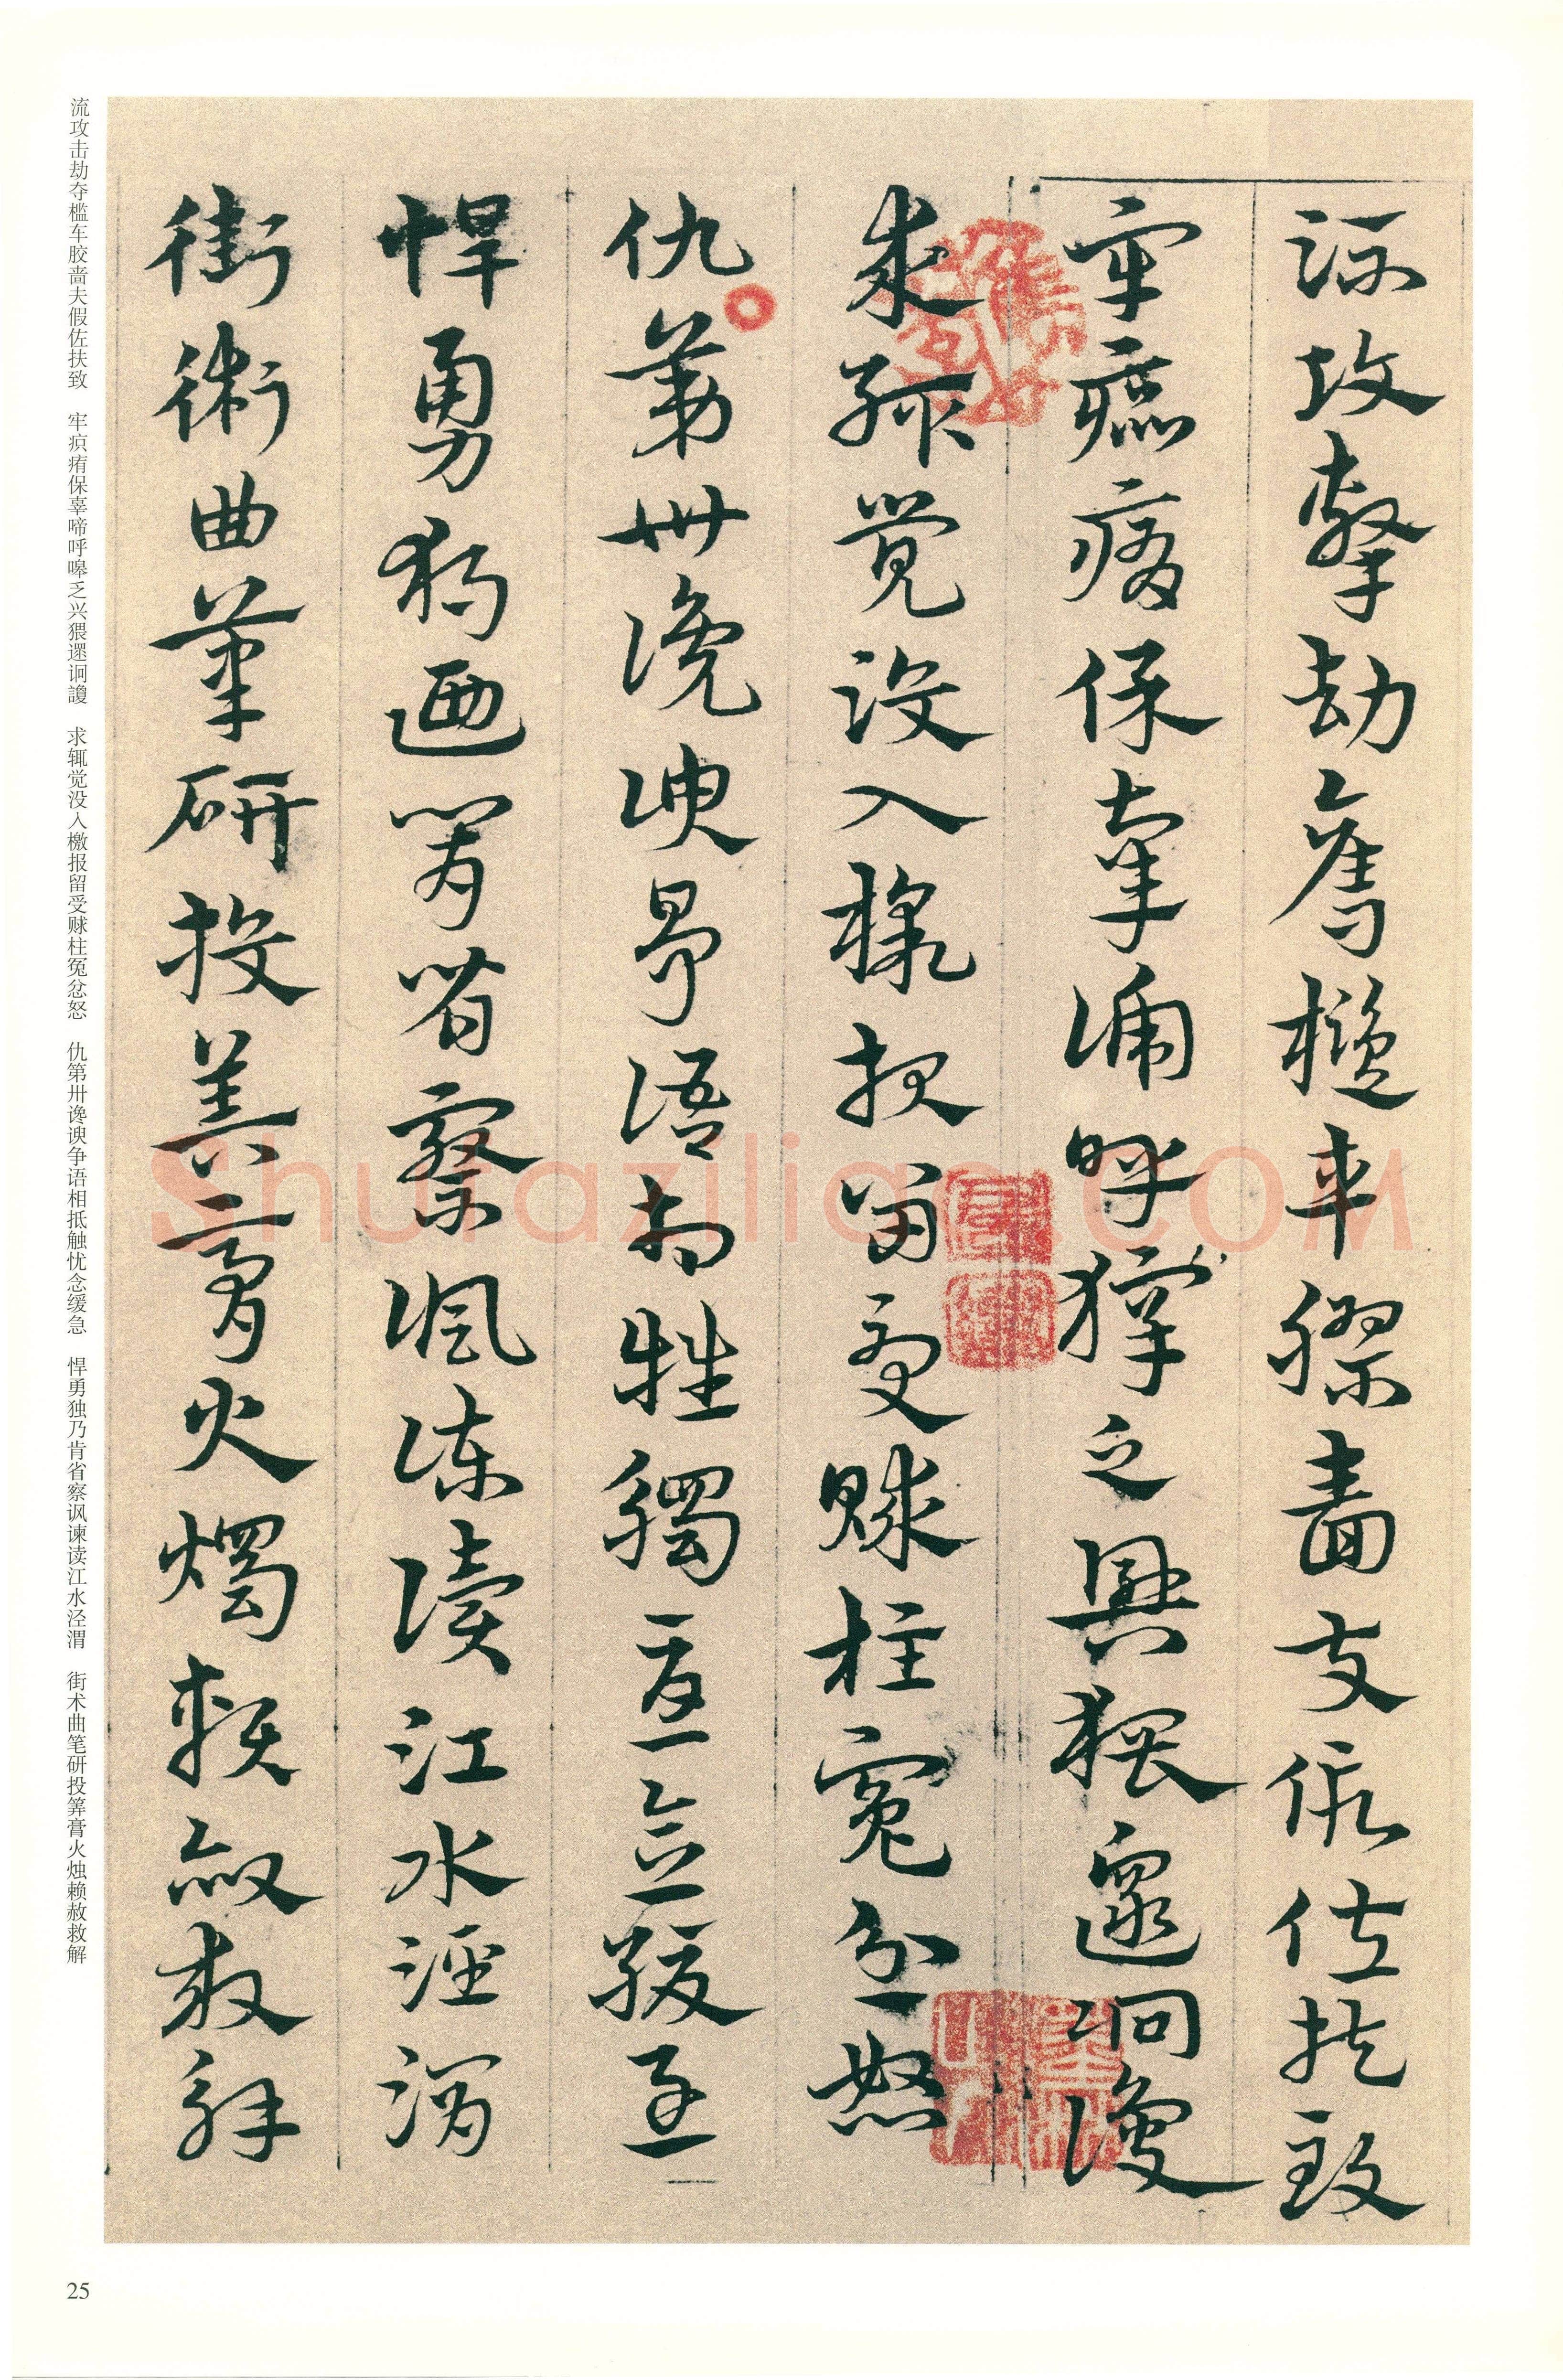 流攻擊劫奪檻車膠嗇夫假佐扶致
牢疻痏保辜啼呼獋乏興猥遝詗讂
求輒覺沒入檄報留受賕柱冤忿怒
仇第卅讒諛爭語相牴觸憂念緩急
悍勇獨迺肯省察諷諫讀江水涇渭
街術曲筆研投筭膏火燭賴赦救解
流攻击劫夺槛车胶啬夫假佐扶致 牢疻痏保辜啼呼嗥乏兴猥遝诇讂 求辄觉没入檄报留受赇柱冤忿怒 仇第卅谗谀争语相抵触忧念缓急 悍勇独乃肯省察讽谏读江水泾渭 街术曲笔研投筭膏火烛赖赦救解
25